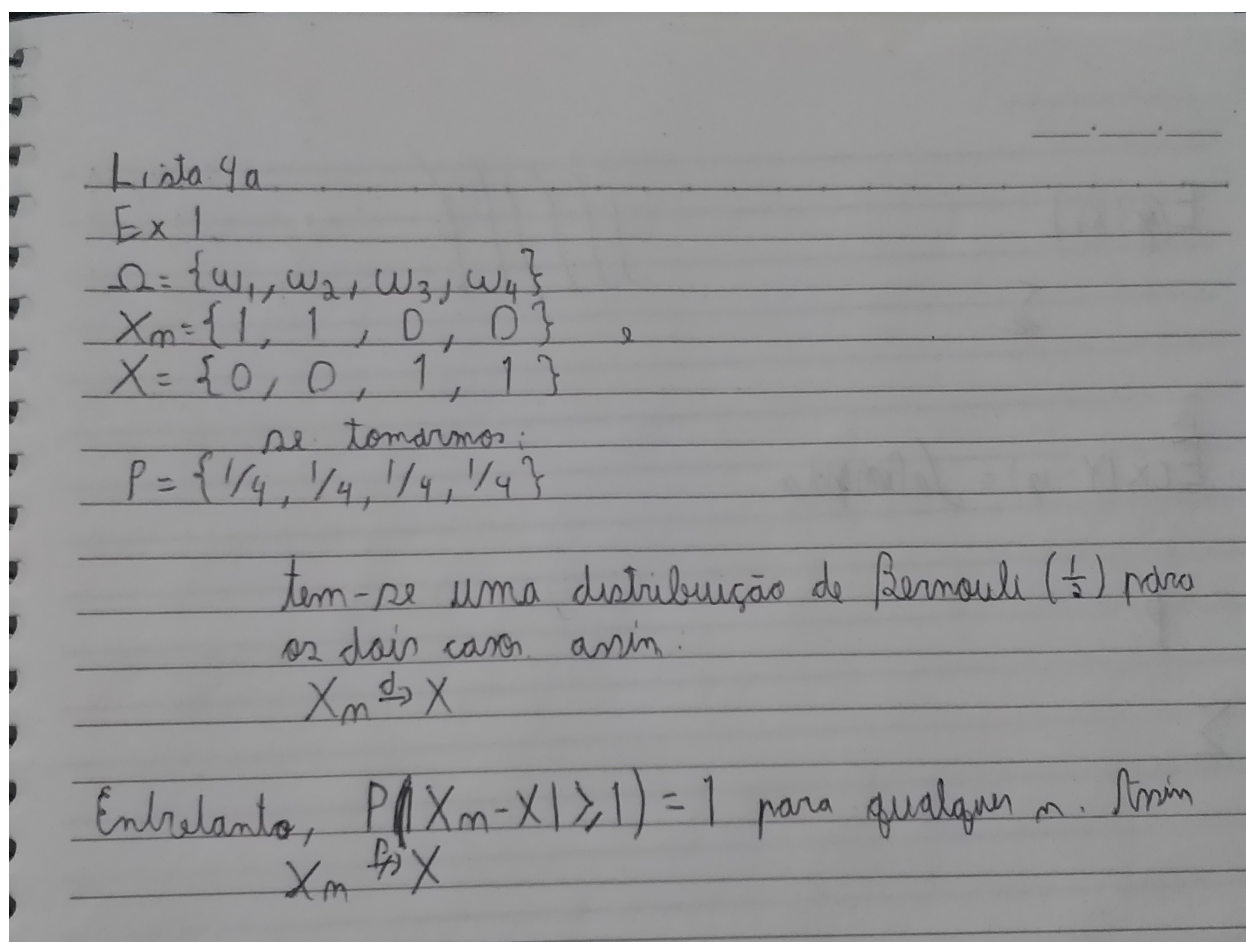 Lista 4a
Ex 1
Ω = {ω₁, ω₂, ω₃, ω₄}
Xₙ = {1, 1, 0, 0} e
X = {0, 0, 1, 1}
se tomarmos:
P = {1/4, 1/4, 1/4, 1/4}
tem-se uma distribuição de Bernouli (1/2) para
os dois casos. assim.
Xₙ →ᵈ X
Entretanto, P(|Xₙ - X| ≥ 1) = 1 para qualquer n. Assim
Xₙ ↛ᵖ X